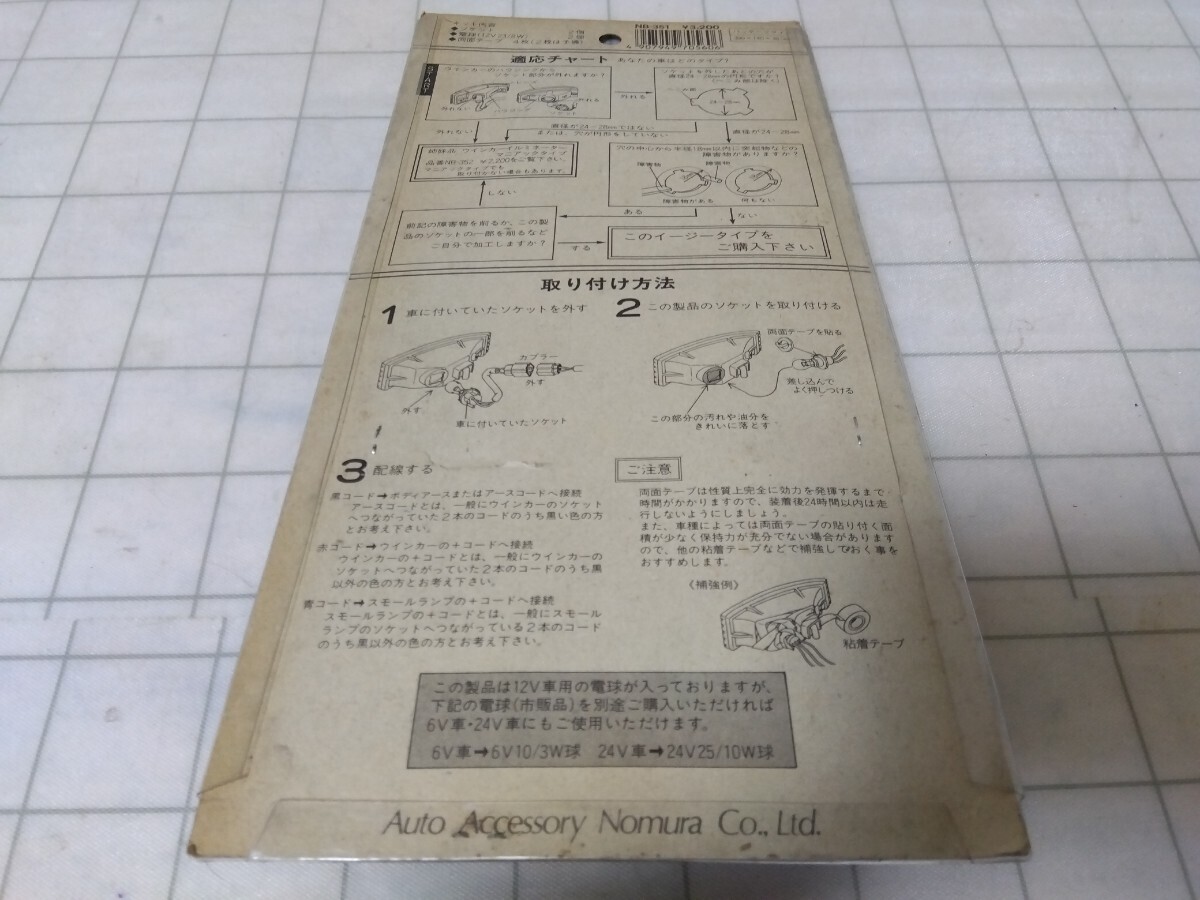 キット内容
◆ソケット 2個
◆電球(12V23/8W) 2個
◆両面テープ 4枚(2枚は予備)
NB-351 ¥3,200
適応チャート あなたの車はどのタイプ?
START
ウインカーのハウジングから
ソケット部分が外れますか?
外れない
外れる
ソケット
外れる
ソケットを外したあとの穴が
直径24〜28mmの円形ですか?
24〜28mm
外れない
直径が24〜28mmではない
または、穴が円形をしていない
直径が24〜28mm
姉妹品 ウインカーイルミネーター
マニアックタイプ
品番NB-352 ¥2,200をご覧下さい。
マニアックタイプでも
取り付かない場合もあります。
穴の中心から半径18mm以内に突起物などの
障害物がありますか?
障害物
障害物
障害物がある
何もない
しない
ある
ない
前記の障害物を削るか、この製
品のソケットの一部を削るなど
ご自分で加工しますか?
する
このイージータイプを
ご購入下さい
取り付け方法
1 車に付いていたソケットを外す
カプラー
外す
外す
車に付いていたソケット
2 この製品のソケットを取り付ける
両面テープを貼る
差し込んで
よく押しつける
この部分の汚れや油分を
きれいに落とす
3 配線する
黒コード➞ボディアースまたはアースコードへ接続
アースコードとは、一般にウインカーのソケット
へつながっていた2本のコードのうち黒い色の方
とお考え下さい。
赤コード➞ウインカーの+コードへ接続
ウインカーの+コードとは、一般にウインカーの
ソケットへつながっていた2本のコードのうち黒
以外の色の方とお考え下さい。
青コード➞スモールランプの+コードへ接続
スモールランプの+コードとは、一般にスモール
ランプのソケットへつながっている2本のコード
のうち黒以外の色の方とお考え下さい。
ご注意
両面テープは性質上完全に効力を発揮するまで
時間がかかりますので、装着後24時間以内は走
行しないようにしましょう。
また、車種によっては両面テープの貼り付く面
積が少なく保持力が充分でない場合があります
ので、他の粘着テープなどで補強しておく事を
おすすめします。
〈補強例〉
粘着テープ
この製品は12V車用の電球が入っておりますが、
下記の電球(市販品)を別途ご購入いただければ
6V車・24V車にもご使用いただけます。
6V車➞6V10/3W球 24V車➞24V25/10W球
Auto Accessory Nomura Co., Ltd.